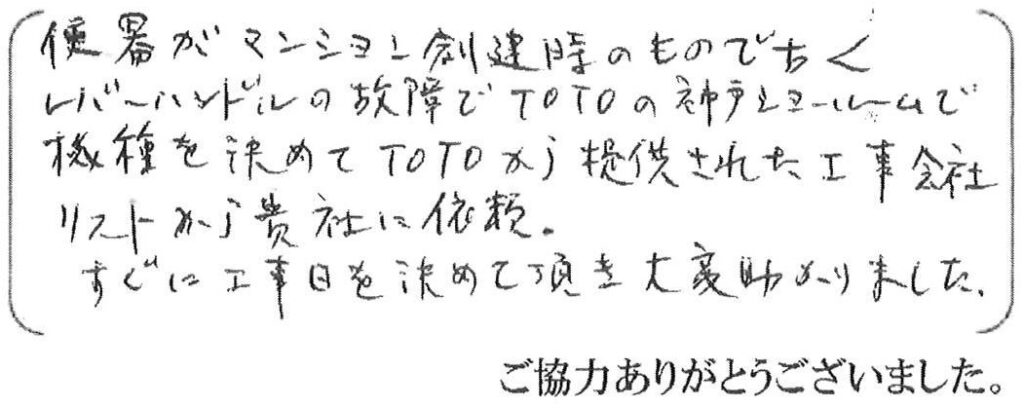 便器がマンション創建時のもので古く
レバーハンドルの故障でTOTOの神戸ショールームで
機種を決めてTOTOから提供された工事会社
リストから貴社に依頼。
すぐに工事日を決めて頂き大変助かりました。
ご協力ありがとうございました。